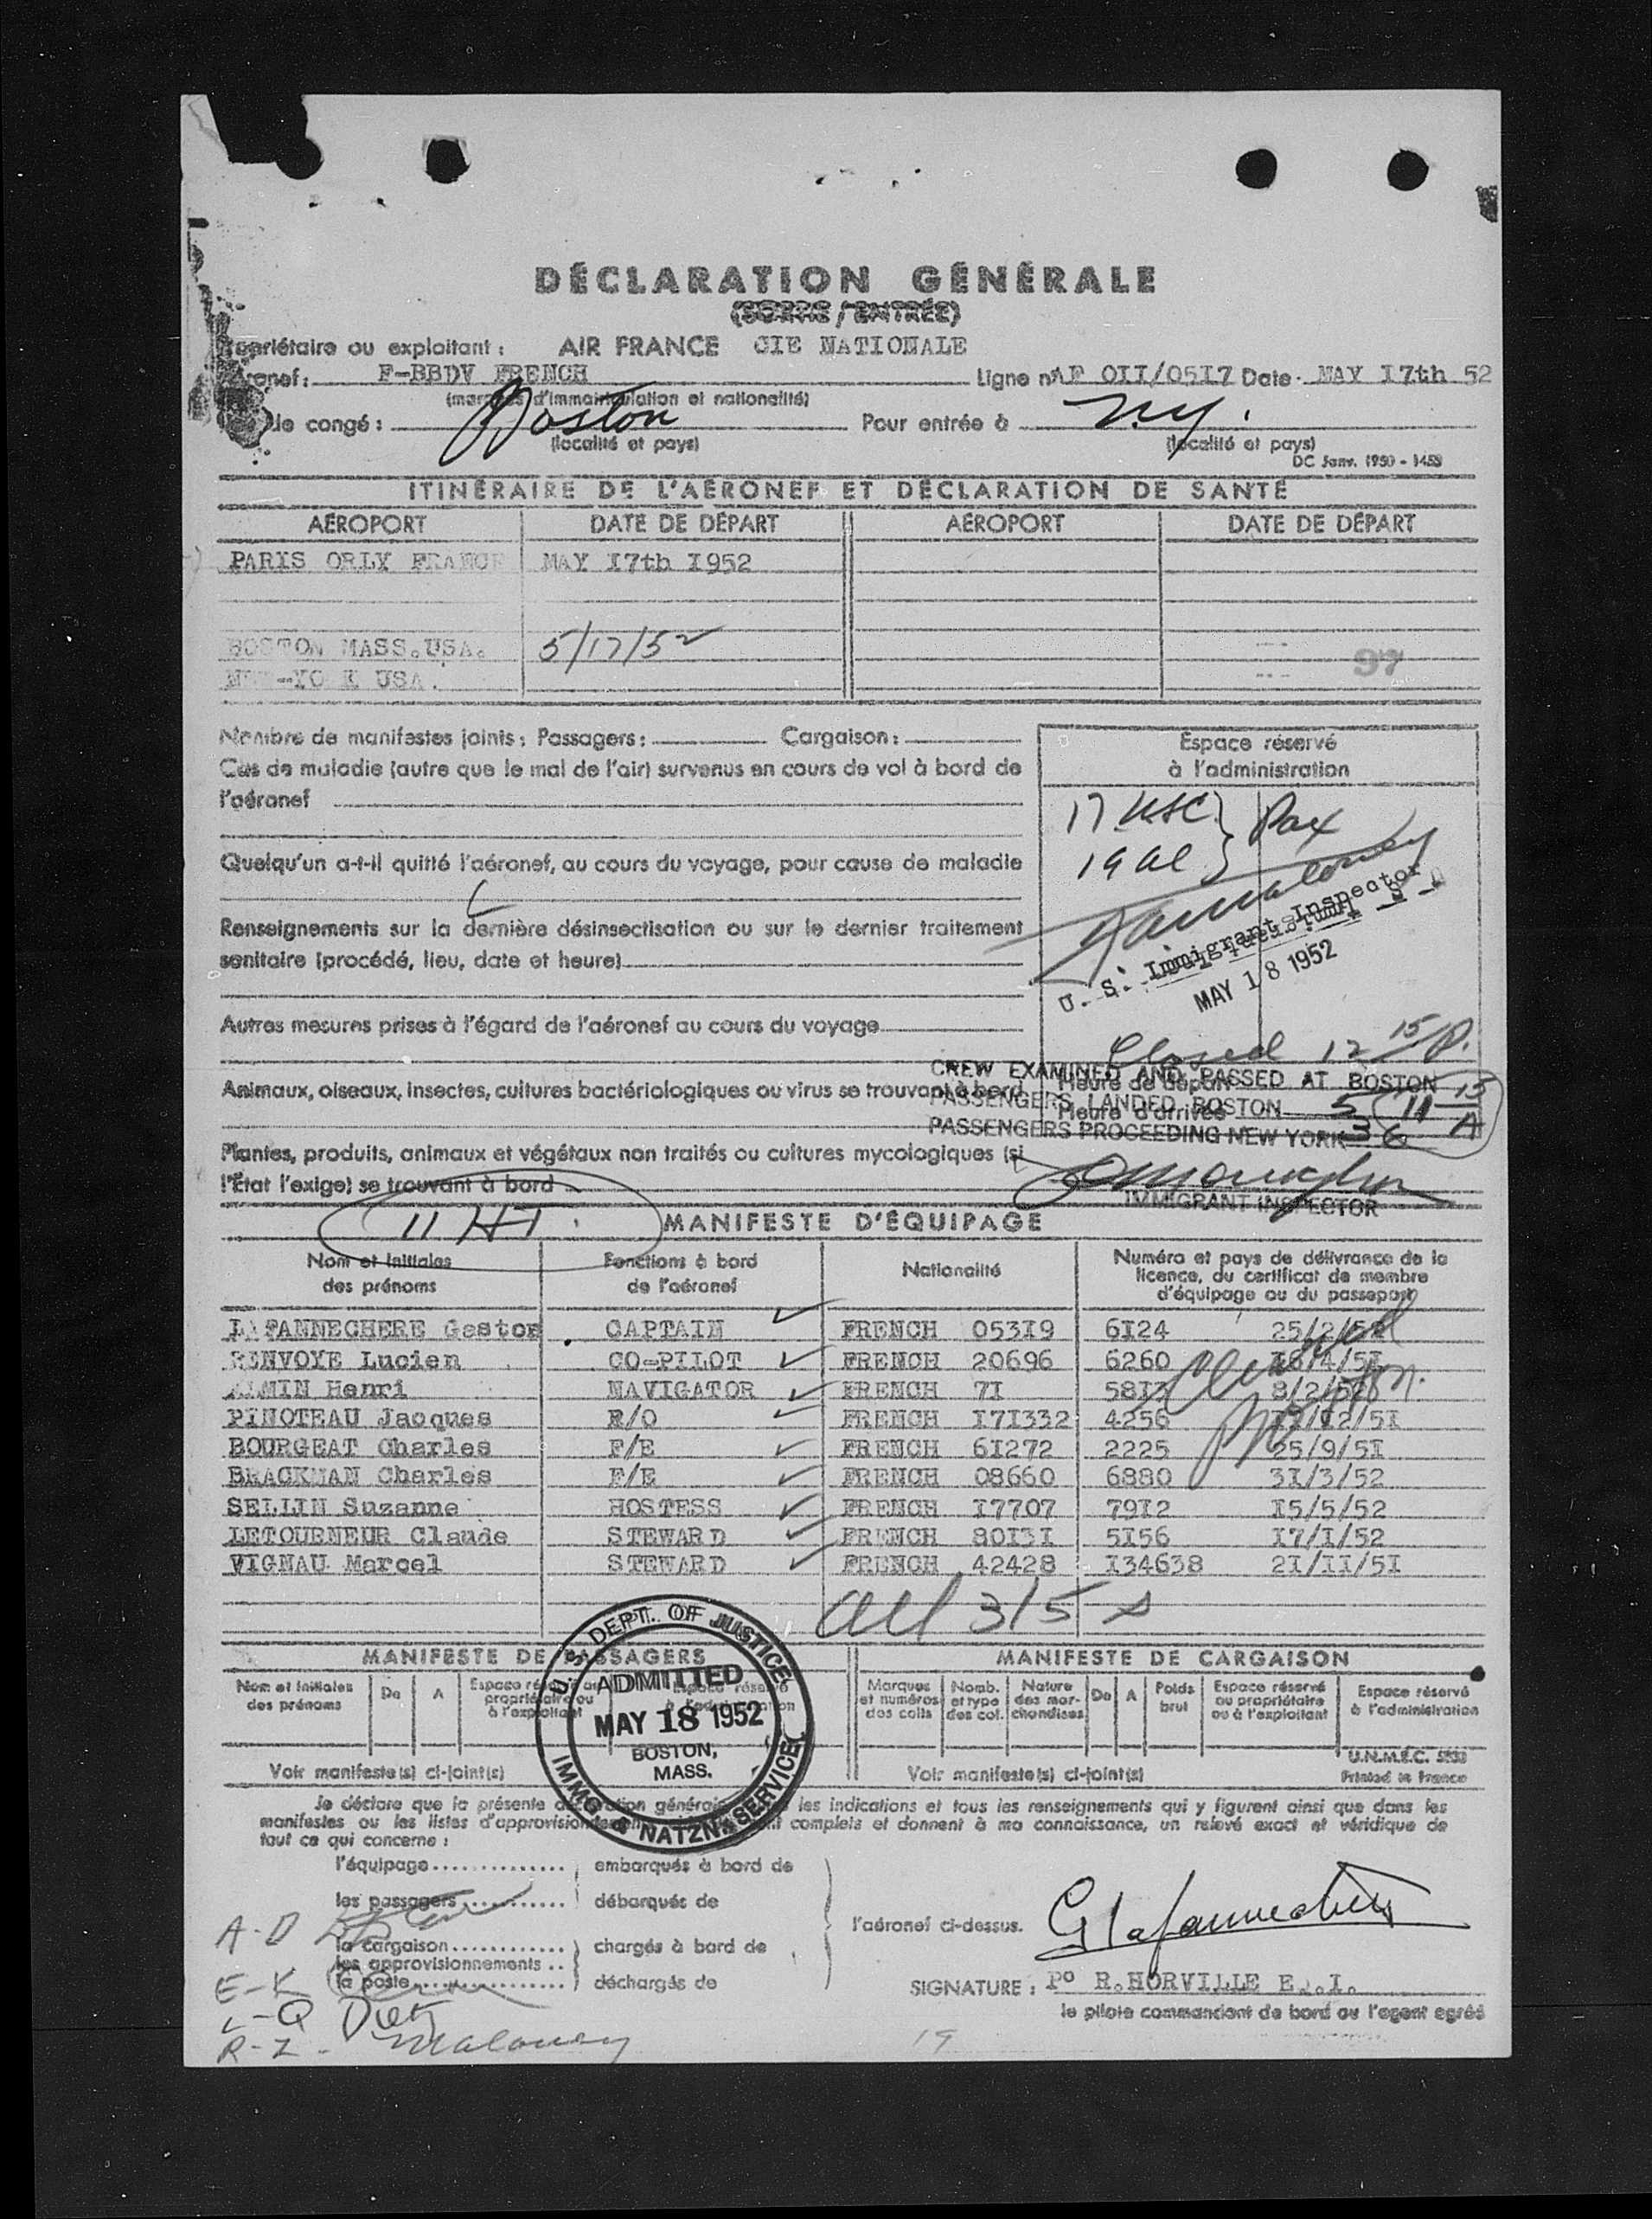 DÉCLARATION GÉNÉRALE
(SORTIE / ENTRÉE)
opriétaire ou exploitant : AIR FRANCE CIE NATIONALE
ronef : F-BBDV FRENCH Ligne n° AF OII/05I7 Date MAY I7th 52
(marques d'immatriculation et nationalité)
de congé : Boston Pour entrée à N.Y.
(localité et pays) (localité et pays)
DC Janv. 1950 - 1453
ITINÉRAIRE DE L'AÉRONEF ET DÉCLARATION DE SANTÉ
AÉROPORT DATE DE DÉPART AÉROPORT DATE DE DÉPART
PARIS ORLY FRANCE MAY I7th I952
BOSTON MASS.USA. 5/17/52
NEW-YO K USA. 97
Nombre de manifestes joints : Passagers : Cargaison :
Espace réservé
à l'administration
Cas de maladie (autre que le mal de l'air) survenus en cours de vol à bord de
l'aéronef
17 USC } Pax
19 al
Quelqu'un a-t-il quitté l'aéronef, au cours du voyage, pour cause de maladie
U. S. Immigrant Inspector
MAY 18 1952
Renseignements sur la dernière désinsectisation ou sur le dernier traitement
sanitaire (procédé, lieu, date et heure)
Autres mesures prises à l'égard de l'aéronef au cours du voyage
Closed 12 15 P.
CREW EXAMINED AND PASSED AT BOSTON
Heure de départ
Animaux, oiseaux, insectes, cultures bactériologiques ou virus se trouvant à bord
PASSENGERS LANDED BOSTON 5
Heure d'arrivée 11 15 A
PASSENGERS PROCEEDING NEW YORK 36
Plantes, produits, animaux et végétaux non traités ou cultures mycologiques (si
l'État l'exige) se trouvant à bord
IMMIGRANT INSPECTOR
11 HT.
MANIFESTE D'ÉQUIPAGE
Nom et initiales des prénoms
Fonctions à bord de l'aéronef
Nationalité
Numéro et pays de délivrance de la licence, du certificat de membre d'équipage ou du passeport
LAFANNECHERE Gaston CAPTAIN FRENCH 053I9 6I24 25/2/52
RENVOYE Lucien CO-PILOT FRENCH 20696 6260 I8/4/5I
Henri NAVIGATOR FRENCH 7I 58I3 8/2/52
PINOTEAU Jacques R/O FRENCH I7I332 4256 /I2/5I
BOURGEAT Charles F/E FRENCH 6I272 2225 25/9/5I
BRACKMAN Charles F/E FRENCH 08660 6880 3I/3/52
SELLIN Suzanne HOSTESS FRENCH I7707 79I2 I5/5/52
LETOURNEUR Claude STEWARD FRENCH 80I3I 5I56 I7/I/52
VIGNAU Marcel STEWARD FRENCH 42428 I34638 2I/II/5I
all 3/5 s
MANIFESTE DE PASSAGERS MANIFESTE DE CARGAISON
Nom et initiales des prénoms De A Espace réservé au propriétaire ou à l'exploitant Espace réservé à l'administration
Marques et numéros des colis Nomb. et type des col. Nature des marchandises De A Poids brut Espace réservé au propriétaire ou à l'exploitant Espace réservé à l'administration
U.S. DEPT. OF JUSTICE
ADMITTED
MAY 18 1952
BOSTON,
MASS.
IMMG. & NATZN. SERVICE
U.N.M.E.C.
Voir manifeste(s) ci-joint(s) Voir manifeste(s) ci-joint(s) Printed in France
Je déclare que la présente déclaration générale les indications et tous les renseignements qui y figurent ainsi que dans les
manifestes ou les listes d'approvisionnement complets et donnent à ma connaissance, un relevé exact et véridique de
tout ce qui concerne :
l'équipage embarqués à bord de
les passagers débarqués de
l'aéronef ci-dessus. G Lafannechere
A-D
la cargaison chargés à bord de
les approvisionnements
E-K la poste déchargés de
SIGNATURE : P° R.HORVILLE E.I.
le pilote commandant de bord ou l'agent agréé
L-Q Dietz
R-Z - Maloney 19